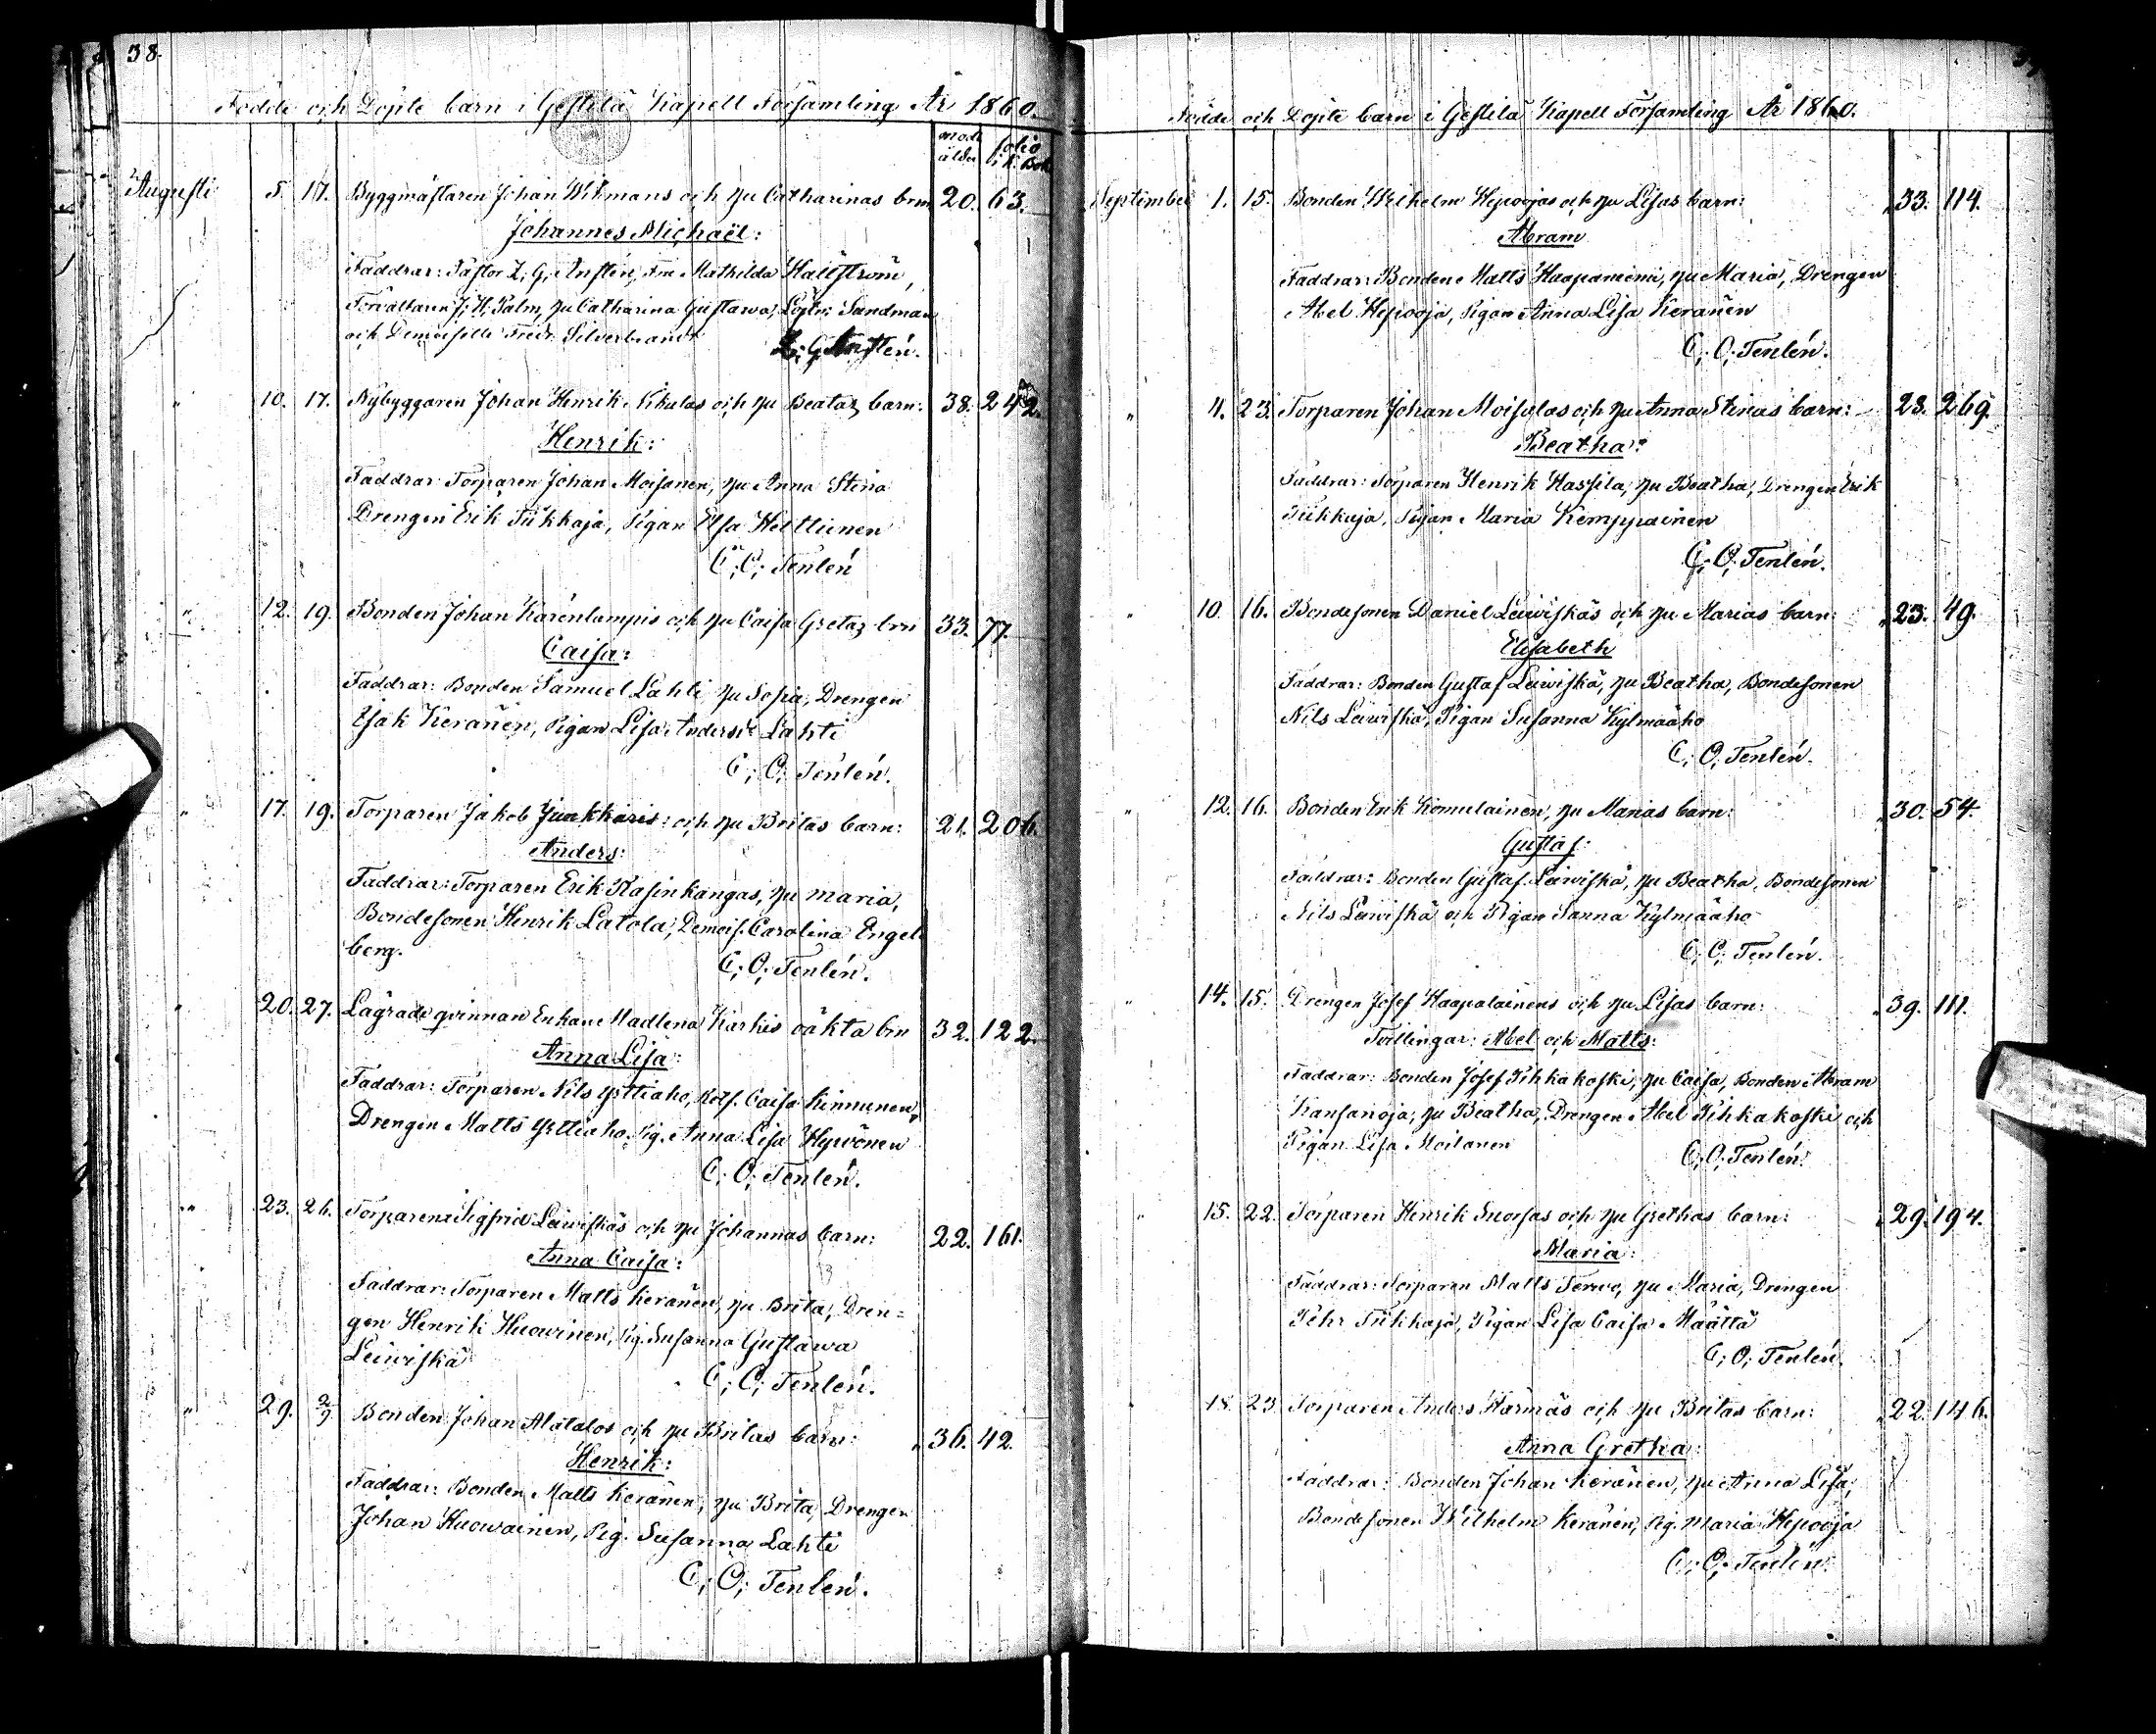 38.
Födde och Döpte barn i Gestilä Kapell Församling År 1860.
mod. ålder folio i K. Bok
Augusti 5. 17. Byggmästaren Johan Witmans och hu Catharinas brn 20. 63.
Johannes Michaël:
Faddrar: Pastor Z; G; Ansten, Fru Mathilda Hallström,
Förvaltaren J; H; Palm, hu Catharina Gustawa, Löjtn: Sandman
och Demoiselle Fredr. Silverbrandt Z; G; Anstén.
" 10. 17. Nybyggaren Johan Henrik Kikulas och hu Beatas barn: 38. 242.
Henrik:
Faddrar: Torparen Johan Moisanen, hu Anna Stina
Drengen Erik Tikkaja, Pigan Elsa Helttunen
C; O; Tenlén
" 12. 19. Bonden Johan Karenlampis och hu Caisa Gretas brn 33. 77.
Caisa:
Faddrar: Bonden Samuel Lahti hu Sofia, Drengen
Isak Keränen, Pigan Lisa Andersdr Lahti
C; O; Tenlén.
" 17. 19. Torparen Jakob Juakkaris: och hu Britas barn: 21. 206.
Anders:
Faddrar: Torparen Erik Rasinkangas, hu maria,
Bondesonen Henrik Latola, Demois. Carolina Engel-
berg. C; O; Tenlén.
" 20. 27. Lägrade qvinnan Enkan Madlena Karkis oäkta brn 32. 122.
Anna Lisa:
Faddrar: Torparen Nils Yrttiaho, Rotf. Caisa Kinnunen,
Drengen Matts Yrttiaho. Pig. Anna Lisa Hyvönen
C; O; Tenlén.
" 23. 26. Torparen Sigfrid Leiviskäs och hu Johannas barn: 22. 161.
Anna Caisa:
Faddrar: Torparen Matts Keränen, hu Brita, Dren=
gen Henrik Huowinen, Pig. Susanna Gustawa
Leiwiskä C; O; Tenlén.
" 29. 2/9 Bonden Johan Alatalos och hu Britas barn: 36. 42.
Henrik:
Faddrar: Bonden Matts Keränen, hu Brita, Drengen
Johan Huowainen, Pig. Susanna Lahti
C; O; Tenlén.
Födde och Döpte barn i Gestilä Kapell Församling År 1860.
September 1. 15. Bonden Wilhelm Hepoojas och hu Lisas barn: 33. 114.
Abram
Faddrar: Bonden Matts Haapaniemi, hu Maria, Drengen
Abel Hepooja, Pigan Anna Lisa Keränen
C; O; Tenlén.
" 4. 23. Torparen Johan Moisalas och hu Anna Stinas barn: 28. 269.
Beatha:
Faddrar: Torparen Henrik Hassila, hu Beatha, Drengen Erik
Tikkaja, Pigan Maria Kemppainen
C; O; Tenlén.
" 10. 16. Bondesonen Daniel Leiwiskäs och hu Marias barn: 23. 49.
Elisabeth
Faddrar: Bonden Gustaf Leiwiskä, hu Beatha, Bondesonen
Nils Leiwiskä, Pigan Susanna Kylmäaho
C; O; Tenlén.
" 12. 16. Bonden Erik Komulainen, hu Marias barn: 30. 54.
Gustaf:
Faddrar: Bonden Gustaf Leiwiskä, hu Beatha, Bondesonen
Nils Leiwiskä och Pigan Sanna Kylmäaho
C; O; Tenlén.
" 14. 15. Drengen Josef Haapalainens och hu Lisas barn: 39. 111.
Tvillingar: Abel och Matts:
Faddrar: Bonden Josef Pihkakoski, hu Caisa, Bonden Abram
Kansanoja, hu Beatha, Drengen Abel Pihkakoski och
Pigan Lisa Moilanen C; O; Tenlén.
" 15. 22. Torparen Henrik Suorsas och hu Grethas barn: 29. 194.
Maria:
Faddrar: Torparen Matts Terwo, hu Maria, Drengen
Pehr Tikkaja, Pigan Lisa Caisa Määttä
C; O; Tenlén.
18. 23. Torparen Anders Härmäs och hu Britas barn: 22. 146.
Anna Gretha:
Faddrar: Bonden Johan Keränen, hu Anna Lisa,
Bondesonen Wilhelm Keränen, Pig. Maria Hepooja
C; O; Tenlén.